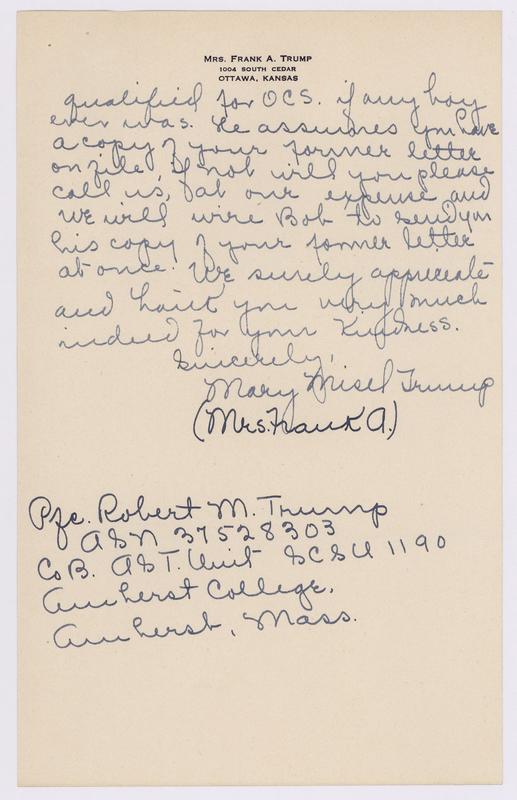 MRS. FRANK A. TRUMP
1004 SOUTH CEDAR
OTTAWA, KANSAS
qualified for OCS. if any boy
ever was. He assumes you have
a copy of your former letter
on file. If not will you please
call us, at our expense and
we will wire Bob to send you
his copy of your former letter
at once. We surely appreciate
and thank you very much
indeed for your kindness.
Sincerely,
Mary Misel Trump
(Mrs. Frank A.)
Pfc. Robert M. Trump
ASN 37528303
Co B. AST. Unit SCSU 1190
Amherst College,
Amherst, Mass.